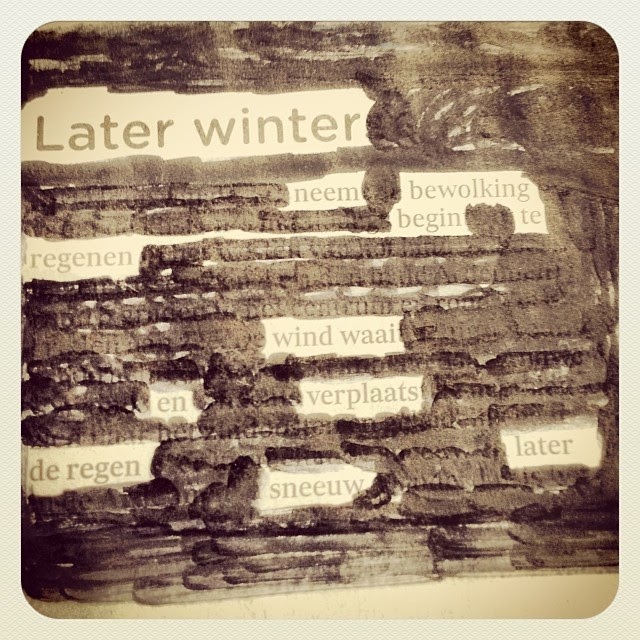 Later winter
neem bewolking
begin te
regenen
wind waai
en verplaats
de regen later
sneeuw